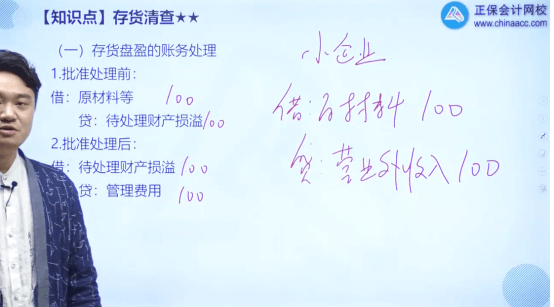 【知识点】存货清查★★
正保会计网校
www.chinaacc.com
(一)存货盘盈的账务处理
1.批准处理前:
借:原材料等 100
贷:待处理财产损溢100
2.批准处理后:
借:待处理财产损溢 100
贷:管理费用 100
小企业
借:百材料 100
贷:营业外收入 100